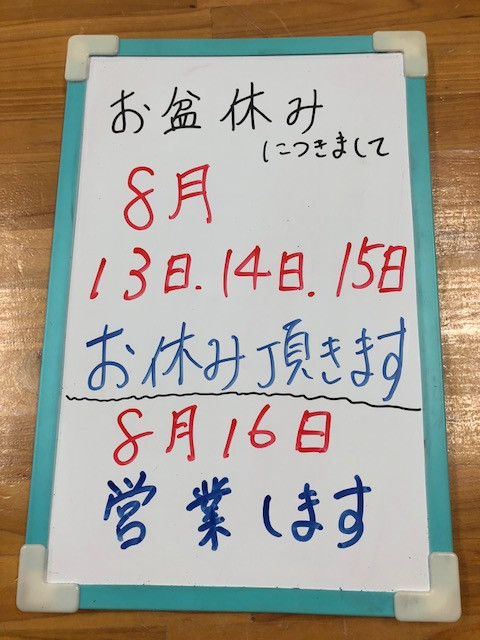 お盆休み
につきまして
8月
13日.14日.15日
お休み頂きます
8月16日
営業します